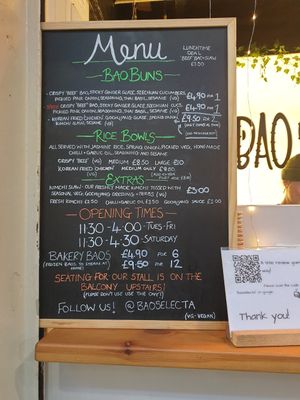 Menu
LUNCHTIME
DEAL
BEEF BAO + SLAW
£7.50
BAO BUNS
- CRISPY BEEF BAO, STICKY GINGER GLAZE, SZECHUAN CUCUMBERS,
PICKLED PINK ONION, SEASONING, THAI BASIL, SESAME
£4.90 FOR 1
BAO, STICKY GINGER GLAZE, SZECHUAN CUCS,
PICKLED PINK ONION, SEASONING, THAI BASIL, SESAME (VG)
£4.90 FOR 1
- KOREAN FRIED CHICKEN, GOCHUJANG SAUCE, ONION,
KIMCHI SLAW, SESAME (VG)
£9.50 FOR 2
RICE BOWLS
ALL SERVED WITH JASMINE RICE, SPRING ONION, PICKLED VEG, HOMEMADE
CHILLI + GARLIC OIL, SEASONING AND SESAME
CRISPY "BEEF" (VG) MEDIUM £8.50 LARGE £10
KOREAN FRIED CHICKEN MEDIUM ONLY £8.50
EXTRAS
KIMCHI SLAW - OUR FRESHLY MADE KIMCHI MIXED WITH
SEASONAL VEG AND DRESSING (VG) £3.00
FRESH KIMCHI £3 CHILLI + GARLIC OIL £3.50 GOCHUJANG SAUCE £1.00
OPENING TIMES
11:30 - 4:00 TUES-FRI
11:30 - 4:30 - SATURDAY
BAKERY BAOS £4.90 FOR 6
(FROZEN BAOS TO STEAM AT HOME) £9.50 FOR 12
SEATING FOR OUR STALL IS ON THE
BALCONY UPSTAIRS!
(PLEASE DON'T USE THE CAFE!)
FOLLOW US! @BAOSELECTA
(VG - VEGAN)
BAO
Thank you!